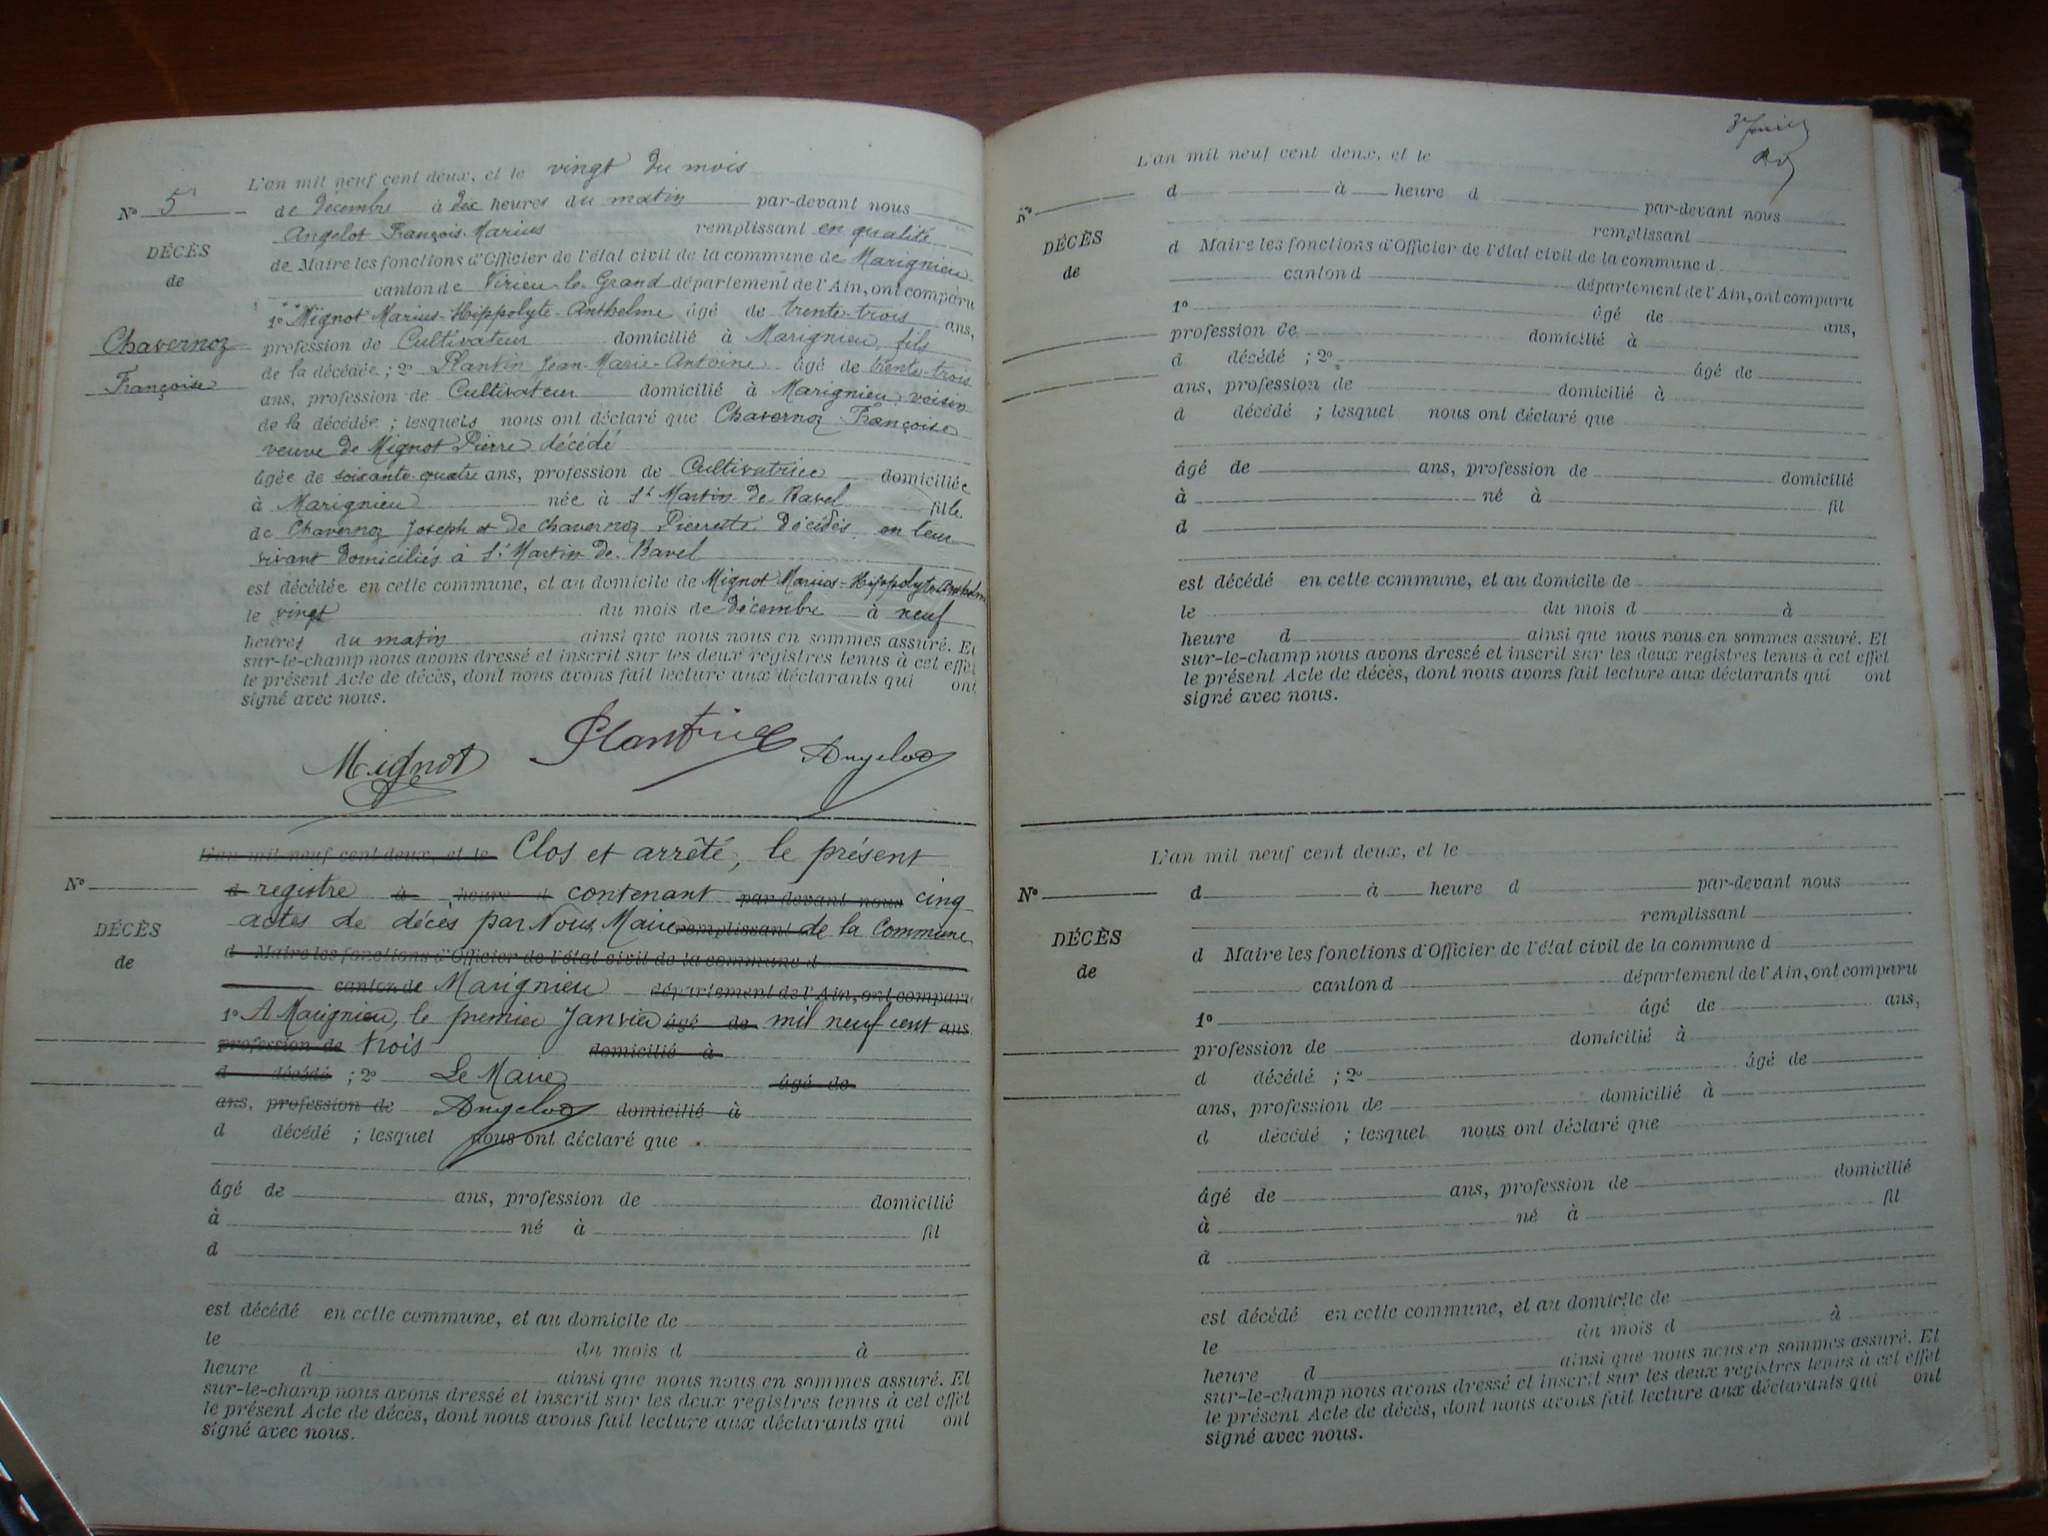 L'an mil neuf cent deux, et le vingt du mois
N° 5
de Décembre à dix heures du matin par-devant nous
Angelot François-Marius remplissant en qualité
DÉCÈS
de Maire les fonctions d'Officier de l'état civil de la commune de Marignieu
de
canton de Virieu-le-Grand département de l'Ain, ont comparu
1° Mignot Marius-Hippolyte-Anthelme âgé de trente-trois ans,
Chavernoz
profession de Cultivateur domicilié à Marignieu, fils
Françoise
de la décédée ; 2° Plantin Jean-Marie-Antoine âgé de trente-trois
ans, profession de Cultivateur domicilié à Marignieu, voisin
de la décédée ; lesquels nous ont déclaré que Chavernoz Françoise
veuve de Mignot Pierre décédé
âgée de soixante-quatre ans, profession de Cultivatrice domiciliée
à Marignieu née à St Martin-de-Bavel fille
de Chavernoz Joseph et de Chavernoz Pierrette décédés en leur
vivant domiciliés à St Martin-de-Bavel
est décédée en cette commune, et au domicile de Mignot Marius-Hippolyte-Anthelme
le vingt du mois de décembre à neuf
heures du matin ainsi que nous nous en sommes assuré. Et
sur-le-champ nous avons dressé et inscrit sur les deux registres tenus à cet effet
le présent Acte de décès, dont nous avons fait lecture aux déclarants qui ont
signé avec nous.
Mignot Plantin Angelot
L'an mil neuf cent deux, et le Clos et arrêté, le présent
N°
d registre à heure d contenant par-devant nous cinq
actes de décès par Nous, Maire remplissant de la Commune
DÉCÈS
d Maire les fonctions d'Officier de l'état civil de la commune d
de
canton de Marignieu département de l'Ain, ont comparu
1° A Marignieu, le premier Janvier âgé de mil neuf cent ans
profession de trois domicilié à
d décédé ; 2° Le Maire âgé de
ans, profession de Angelot domicilié à
d décédé ; lesquel nous ont déclaré que
âgé de ans, profession de domicilié
à né à fil
d
est décédé en cette commune, et au domicile de
le du mois d à
heure d ainsi que nous nous en sommes assuré. Et
sur-le-champ nous avons dressé et inscrit sur les deux registres tenus à cet effet
le présent Acte de décès, dont nous avons fait lecture aux déclarants qui ont
signé avec nous.
L'an mil neuf cent deux, et le
N°
d à heure d par-devant nous
remplissant
DÉCÈS
d Maire les fonctions d'Officier de l'état civil de la commune d
de
canton d département de l'Ain, ont comparu
1° âgé de ans,
profession de domicilié à
d décédé ; 2° âgé de
ans, profession de domicilié à
d décédé ; lesquel nous ont déclaré que
âgé de ans, profession de domicilié
à né à fil
d
est décédé en cette commune, et au domicile de
le du mois d à
heure d ainsi que nous nous en sommes assuré. Et
sur-le-champ nous avons dressé et inscrit sur les deux registres tenus à cet effet
le présent Acte de décès, dont nous avons fait lecture aux déclarants qui ont
signé avec nous.
L'an mil neuf cent deux, et le
N°
d à heure d par-devant nous
remplissant
DÉCÈS
d Maire les fonctions d'Officier de l'état civil de la commune d
de
canton d département de l'Ain, ont comparu
1° âgé de ans,
profession de domicilié à
d décédé ; 2° âgé de
ans, profession de domicilié à
d décédé ; lesquel nous ont déclaré que
âgé de ans, profession de domicilié
à né à fil
d
est décédé en cette commune, et au domicile de
le du mois d à
heure d ainsi que nous nous en sommes assuré. Et
sur-le-champ nous avons dressé et inscrit sur les deux registres tenus à cet effet
le présent Acte de décès, dont nous avons fait lecture aux déclarants qui ont
signé avec nous.